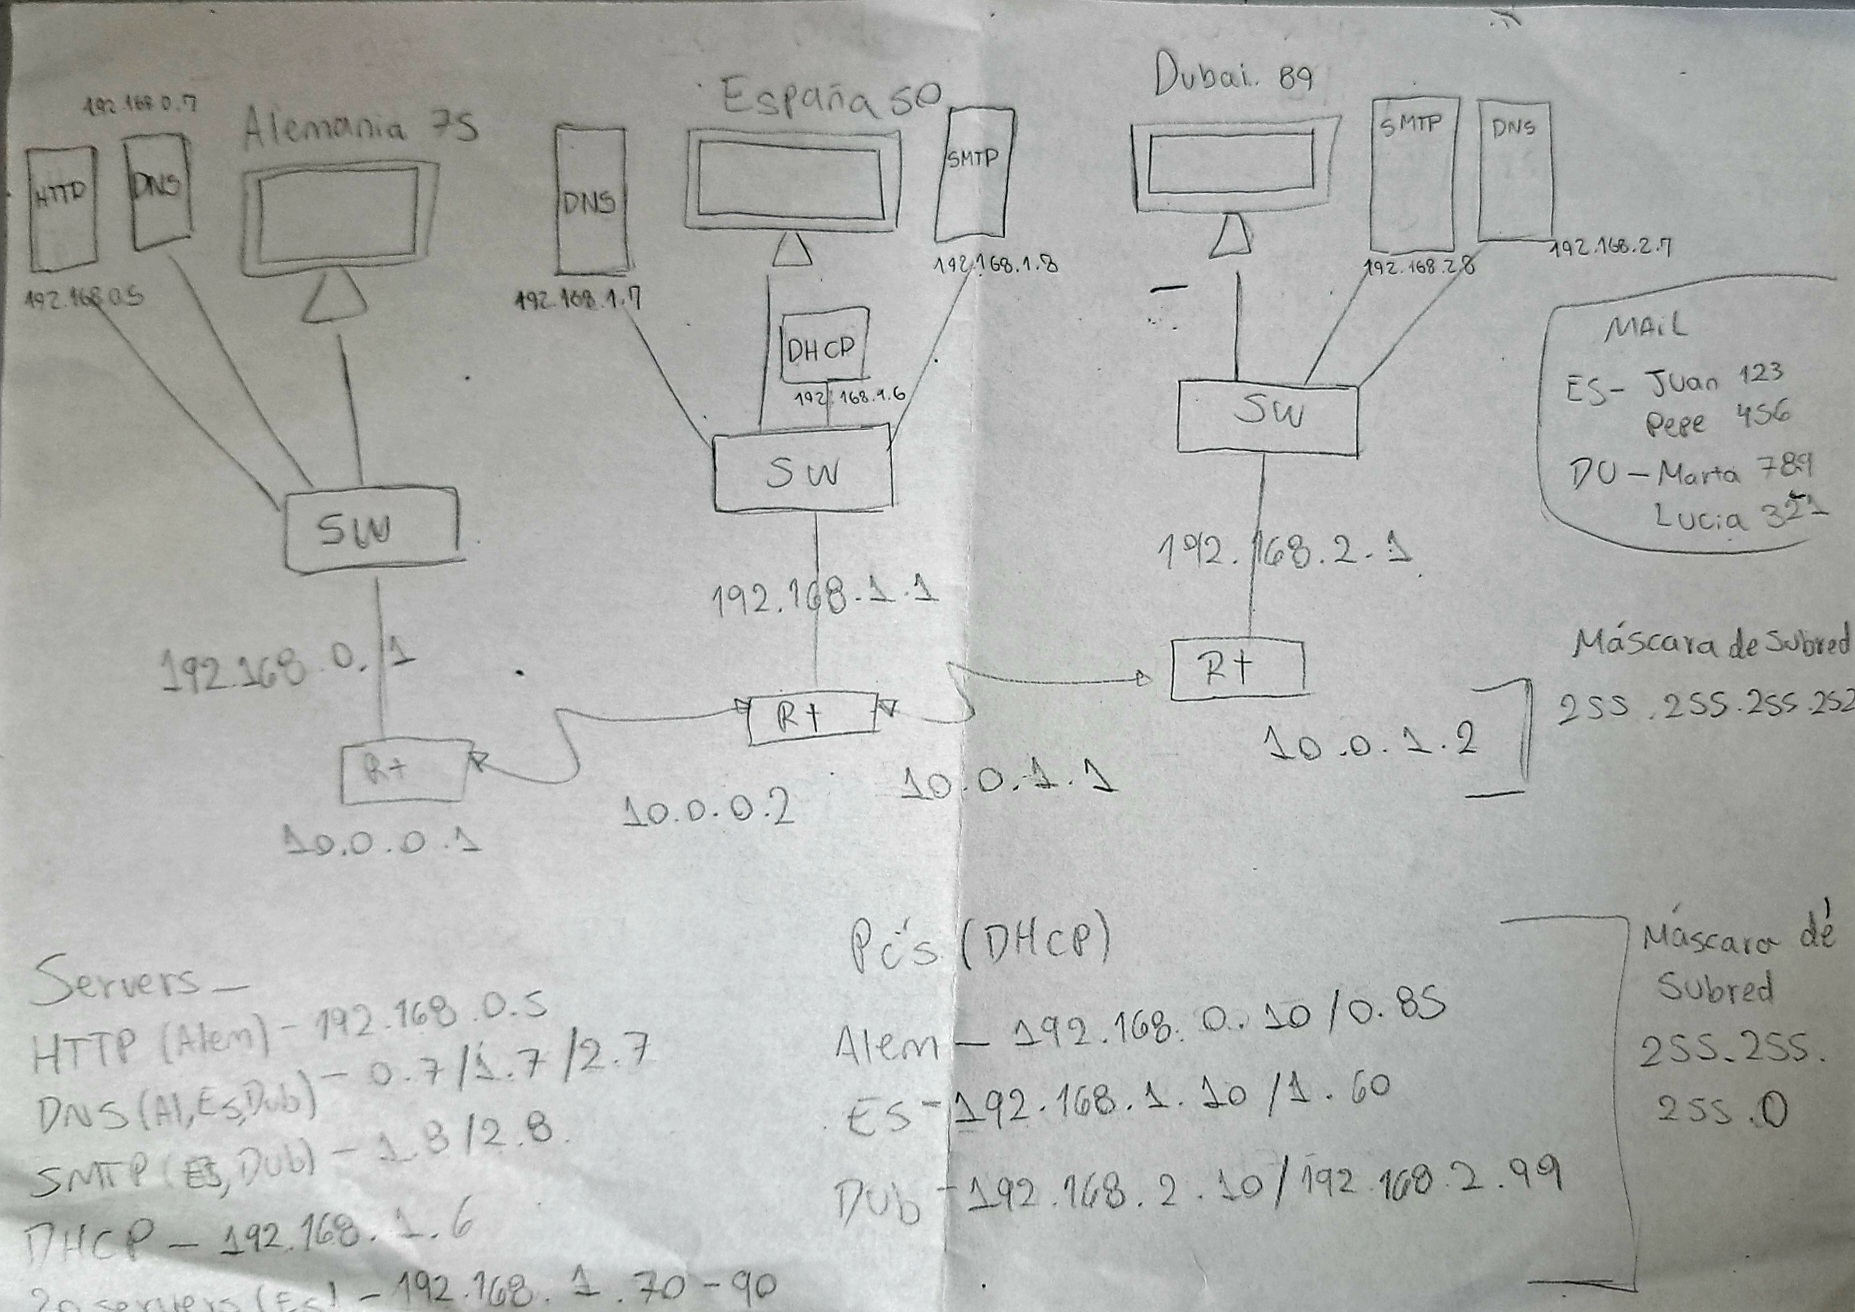 192.168.0.7
Alemania 75
HTTP
DNS
192.168.0.5
SW
192.168.0.1
R+
10.0.0.1
España 50
DNS
192.168.1.7
SMTP
192.168.1.8
DHCP
192.168.1.6
SW
192.168.1.1
R+
10.0.0.2
10.0.1.1
Dubai. 89
SMTP
DNS
192.168.2.8
192.168.2.7
SW
192.168.2.1
R+
10.0.1.2
MAiL
ES- Juan 123
Pepe 456
DU - Marta 789
Lucia 321
Máscara de Subred
255.255.255.252
Servers -
HTTP (Alem) - 192.168.0.5
DNS (Al, Es, Dub) - 0.7/1.7/2.7
SMTP (ES, Dub) - 1.8/2.8.
DHCP - 192.168.1.6
20 servers (Es) - 192.168.1.70-90
Pc's (DHCP)
Alem - 192.168.0.10/0.85
ES - 192.168.1.10/1.60
Dub - 192.168.2.10/192.168.2.99
Máscara de
Subred
255.255.
255.0